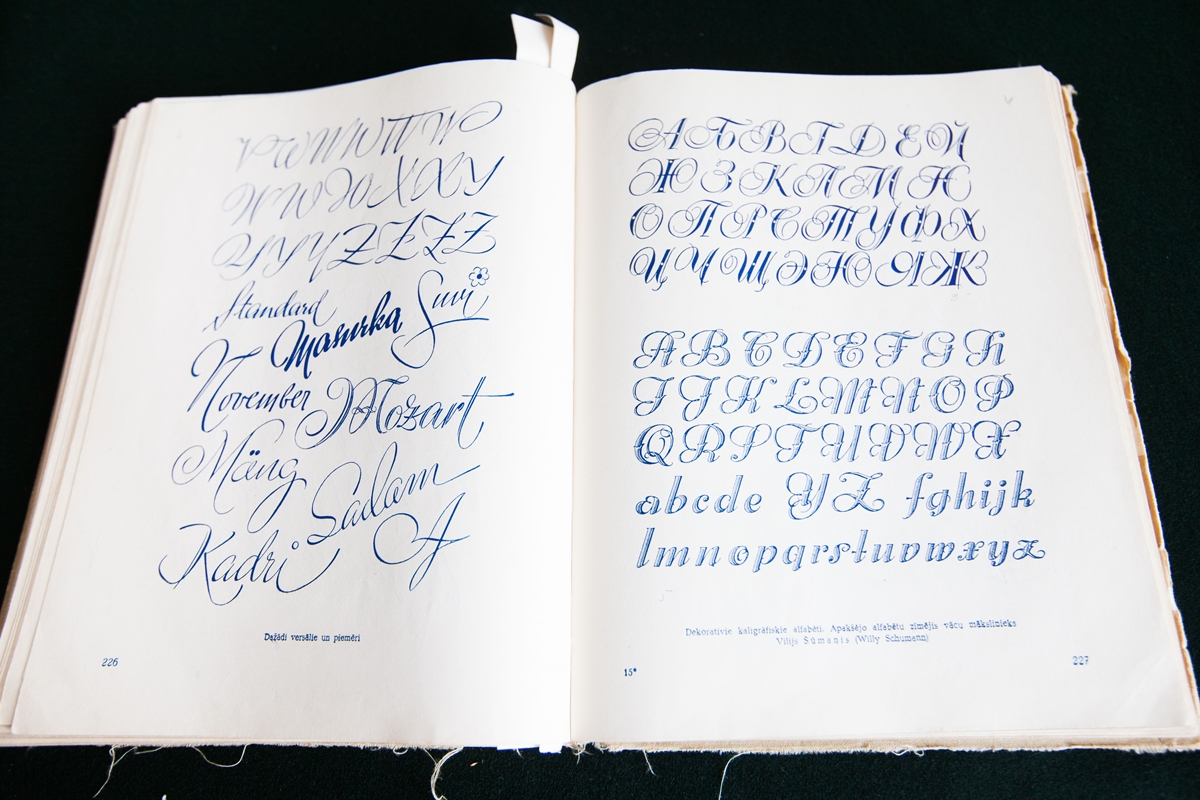 Standard
Masurka
Suvi
November
Mozart
Mäng
Sadam
Kadri
A
Dažādi versālie un piemēri
226
А Б В Г Д Е Й
Ж З К Л М Н
О П Р С Т У Ф Х
Ц Ч Щ Э Ю Я Ж
A B C D E F G H
I J K L M N O P
Q R S T U V W X
a b c d e Y Z f g h i j k
l m n o p q r s t u v w x y z
Dekoratīvie kaligrāfiskie alfabēti. Apakšējo alfabētu zīmējis vācu mākslinieks
Vilijs Šūmanis (Willy Schumann)
15*
227